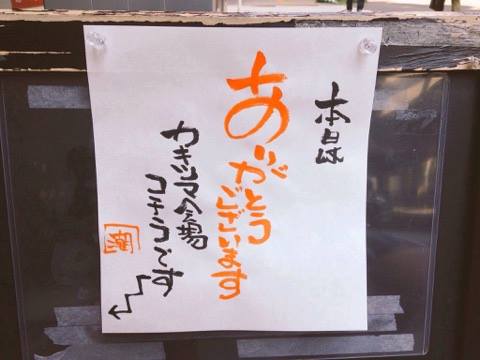 本日は
ありがとう
ございます
カキツマ会場
コチラです